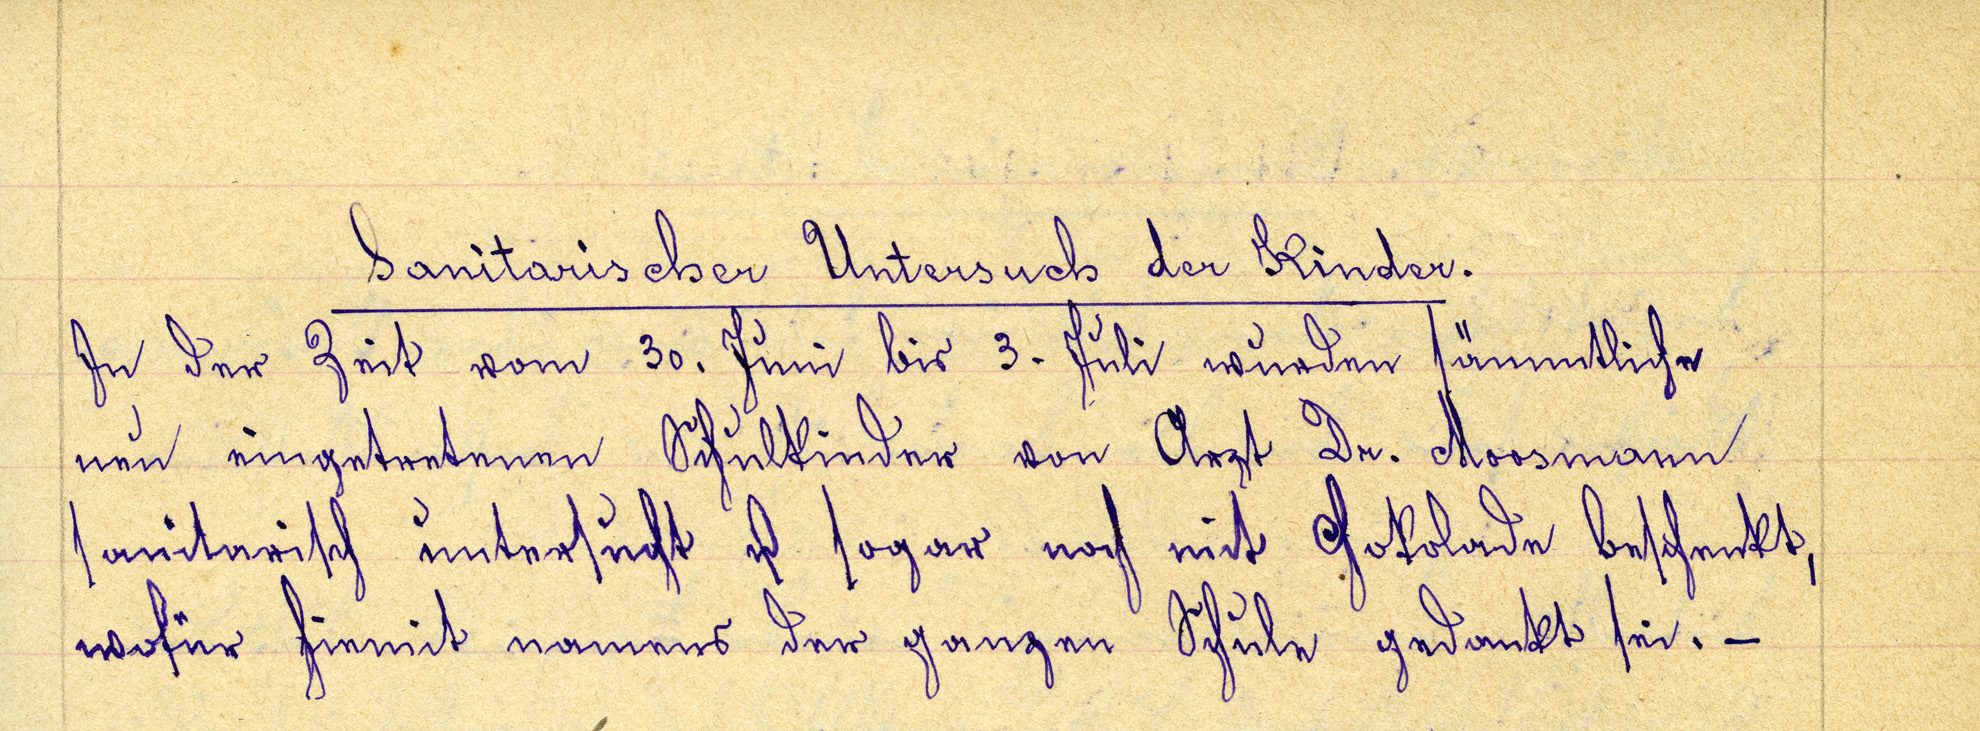 Sanitarischer Untersuch der Kinder.
In der Zeit vom 30. Juni bis 3. Juli wurden sämmtliche
neu eingetretenen Schulkinder von Arzt Dr. Moosmann
sanitarisch untersucht & sogar noch mit Chokolade beschenkt,
wofür hiemit namens der ganzen Schule gedankt sei. –